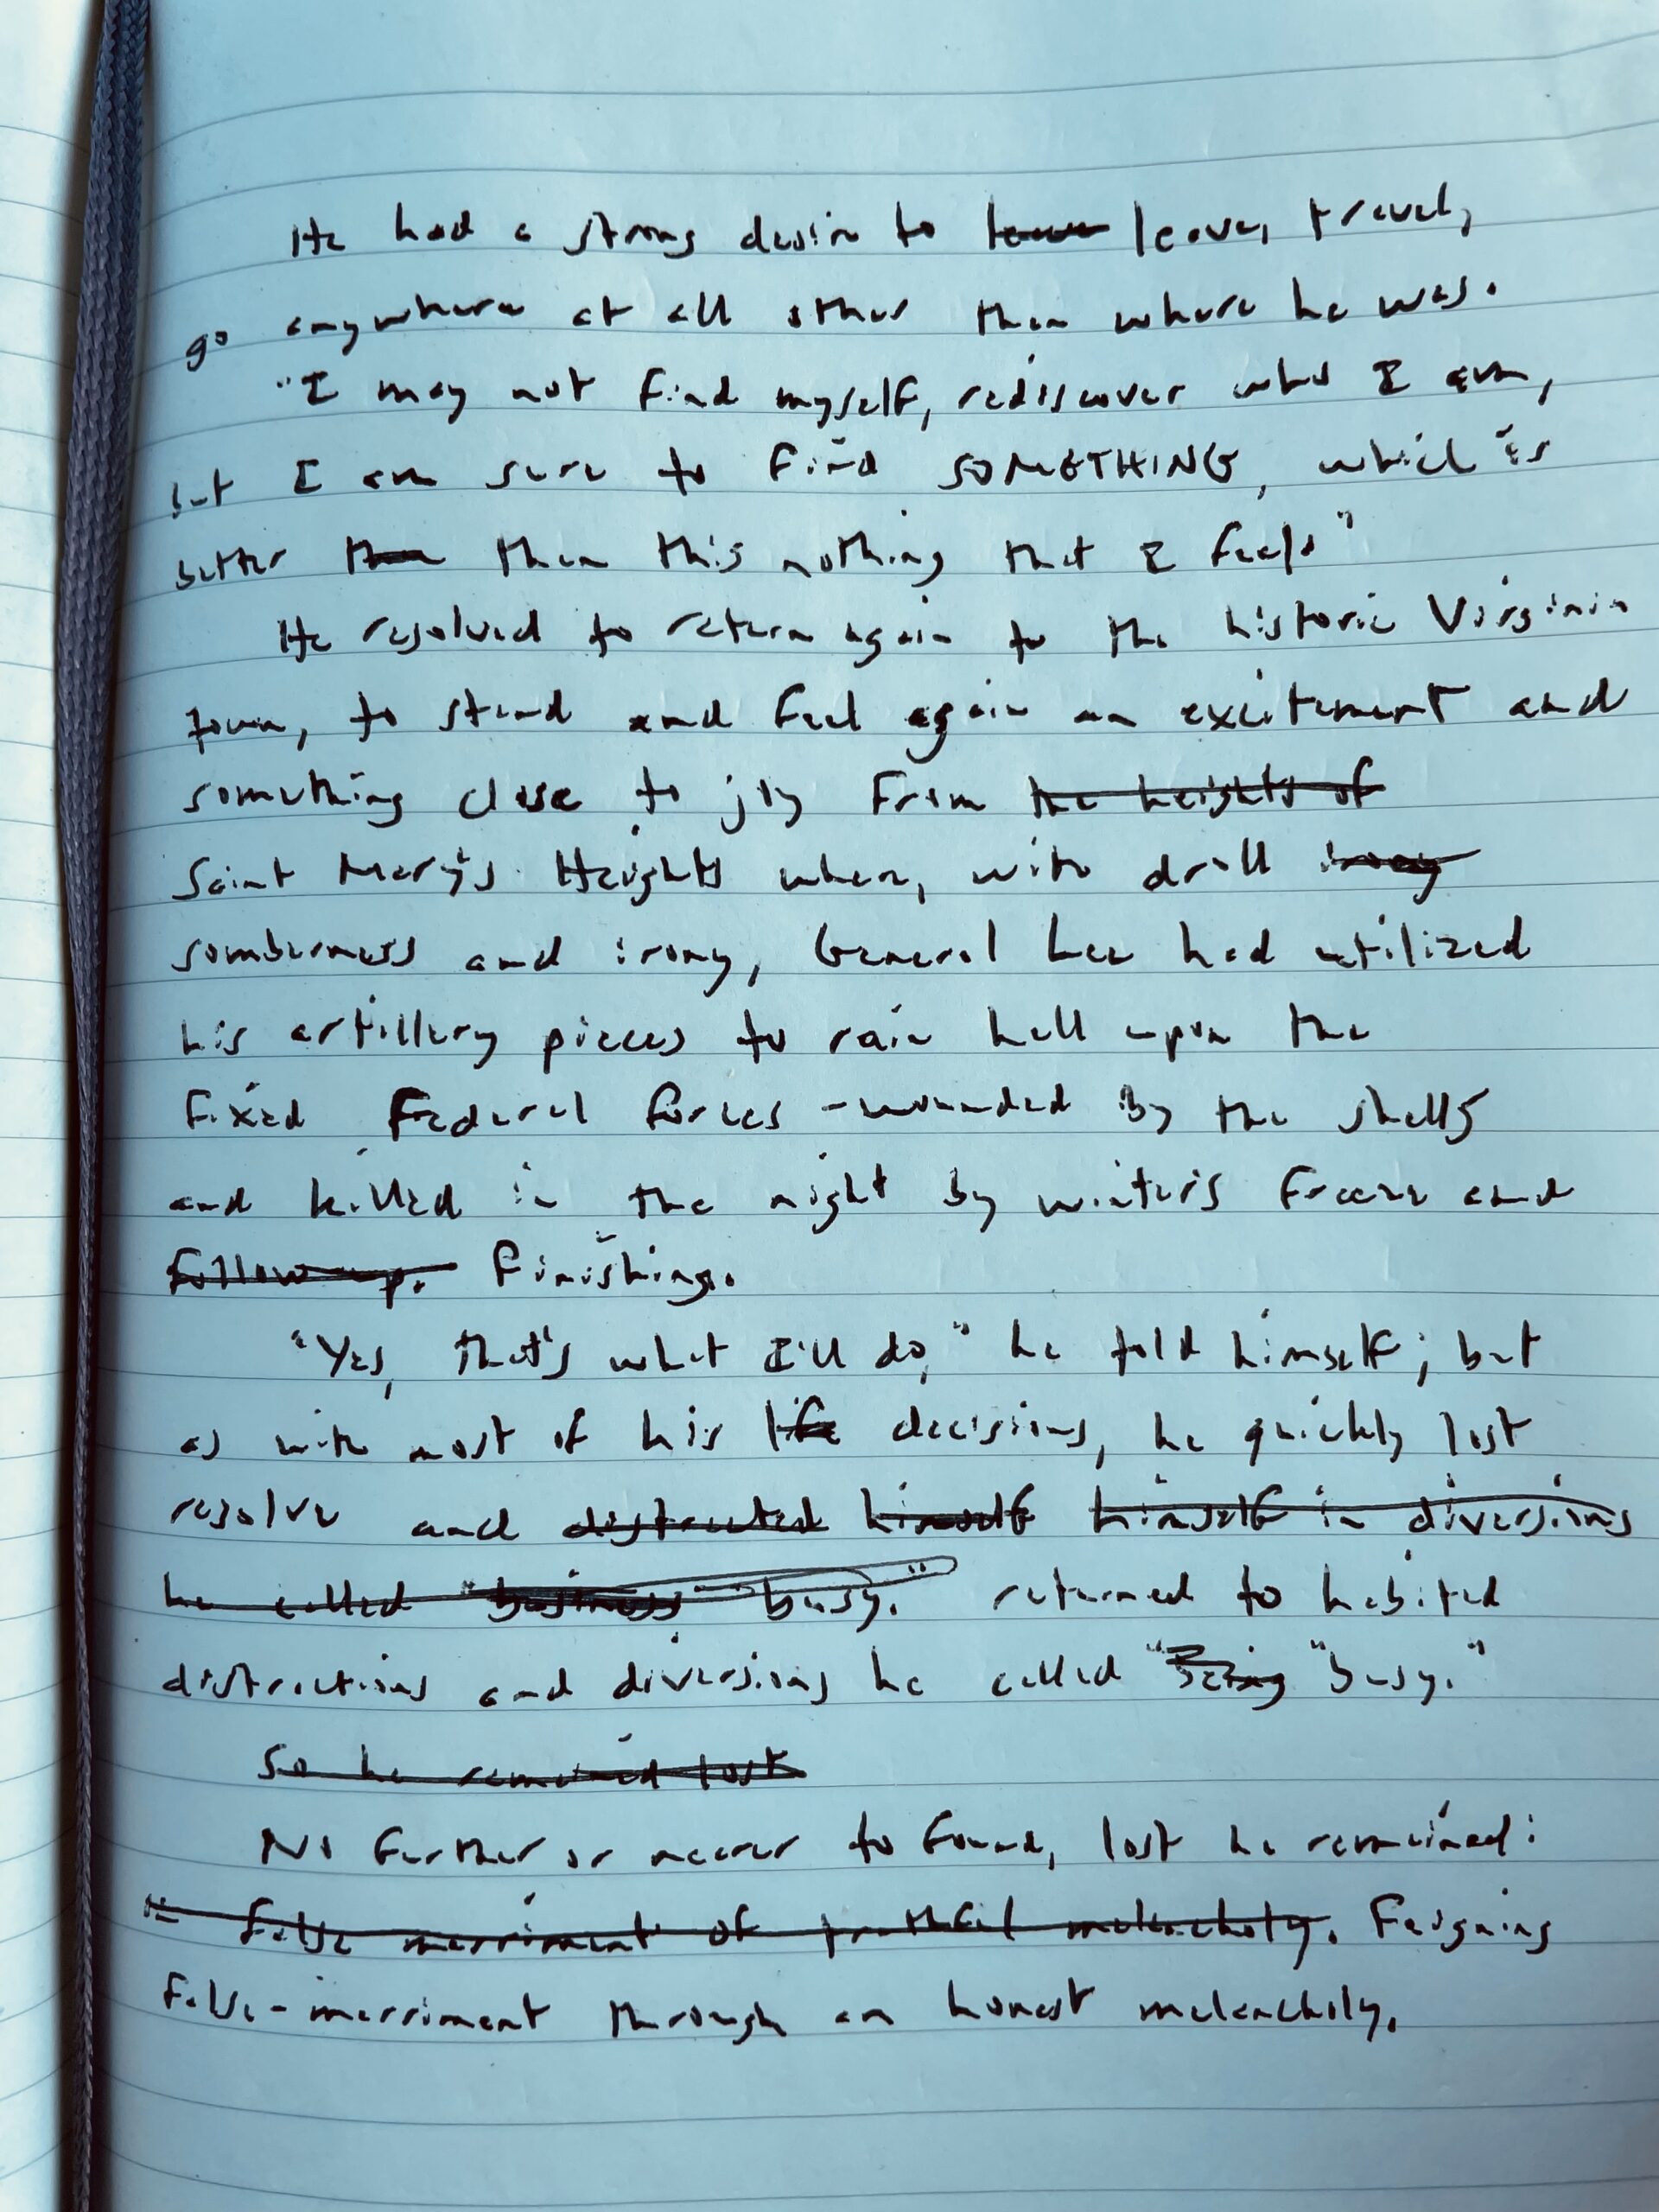 He had a strong desire to leave leave, travel,
go anywhere at all other than where he was.
"I may not find myself, rediscover who I am,
but I am sure to find SOMETHING, which is
better than than this nothing that I feel."
He resolved to return again to the historic Virginia
town, to stand and feel again an excitement and
something close to joy from the heights of
Saint Mary's Heights when, with droll irony
somberness and irony, General Lee had utilized
his artillery pieces to rain hell upon the
fixed Federal forces - wounded by the shells
and killed in the night by winter's freeze and
follow-up. finishing.
"Yes, that's what I'll do," he told himself; but
as with most of his life decisions, he quickly lost
resolve and distracted himself himself in diversions
he called "business" "busy." returned to habited
distractions and diversions he called "being "busy."
So he remained lost
No further or nearer to found, lost he remained:
False merriment of melancholy. Feigning
false-merriment through an honest melancholy.